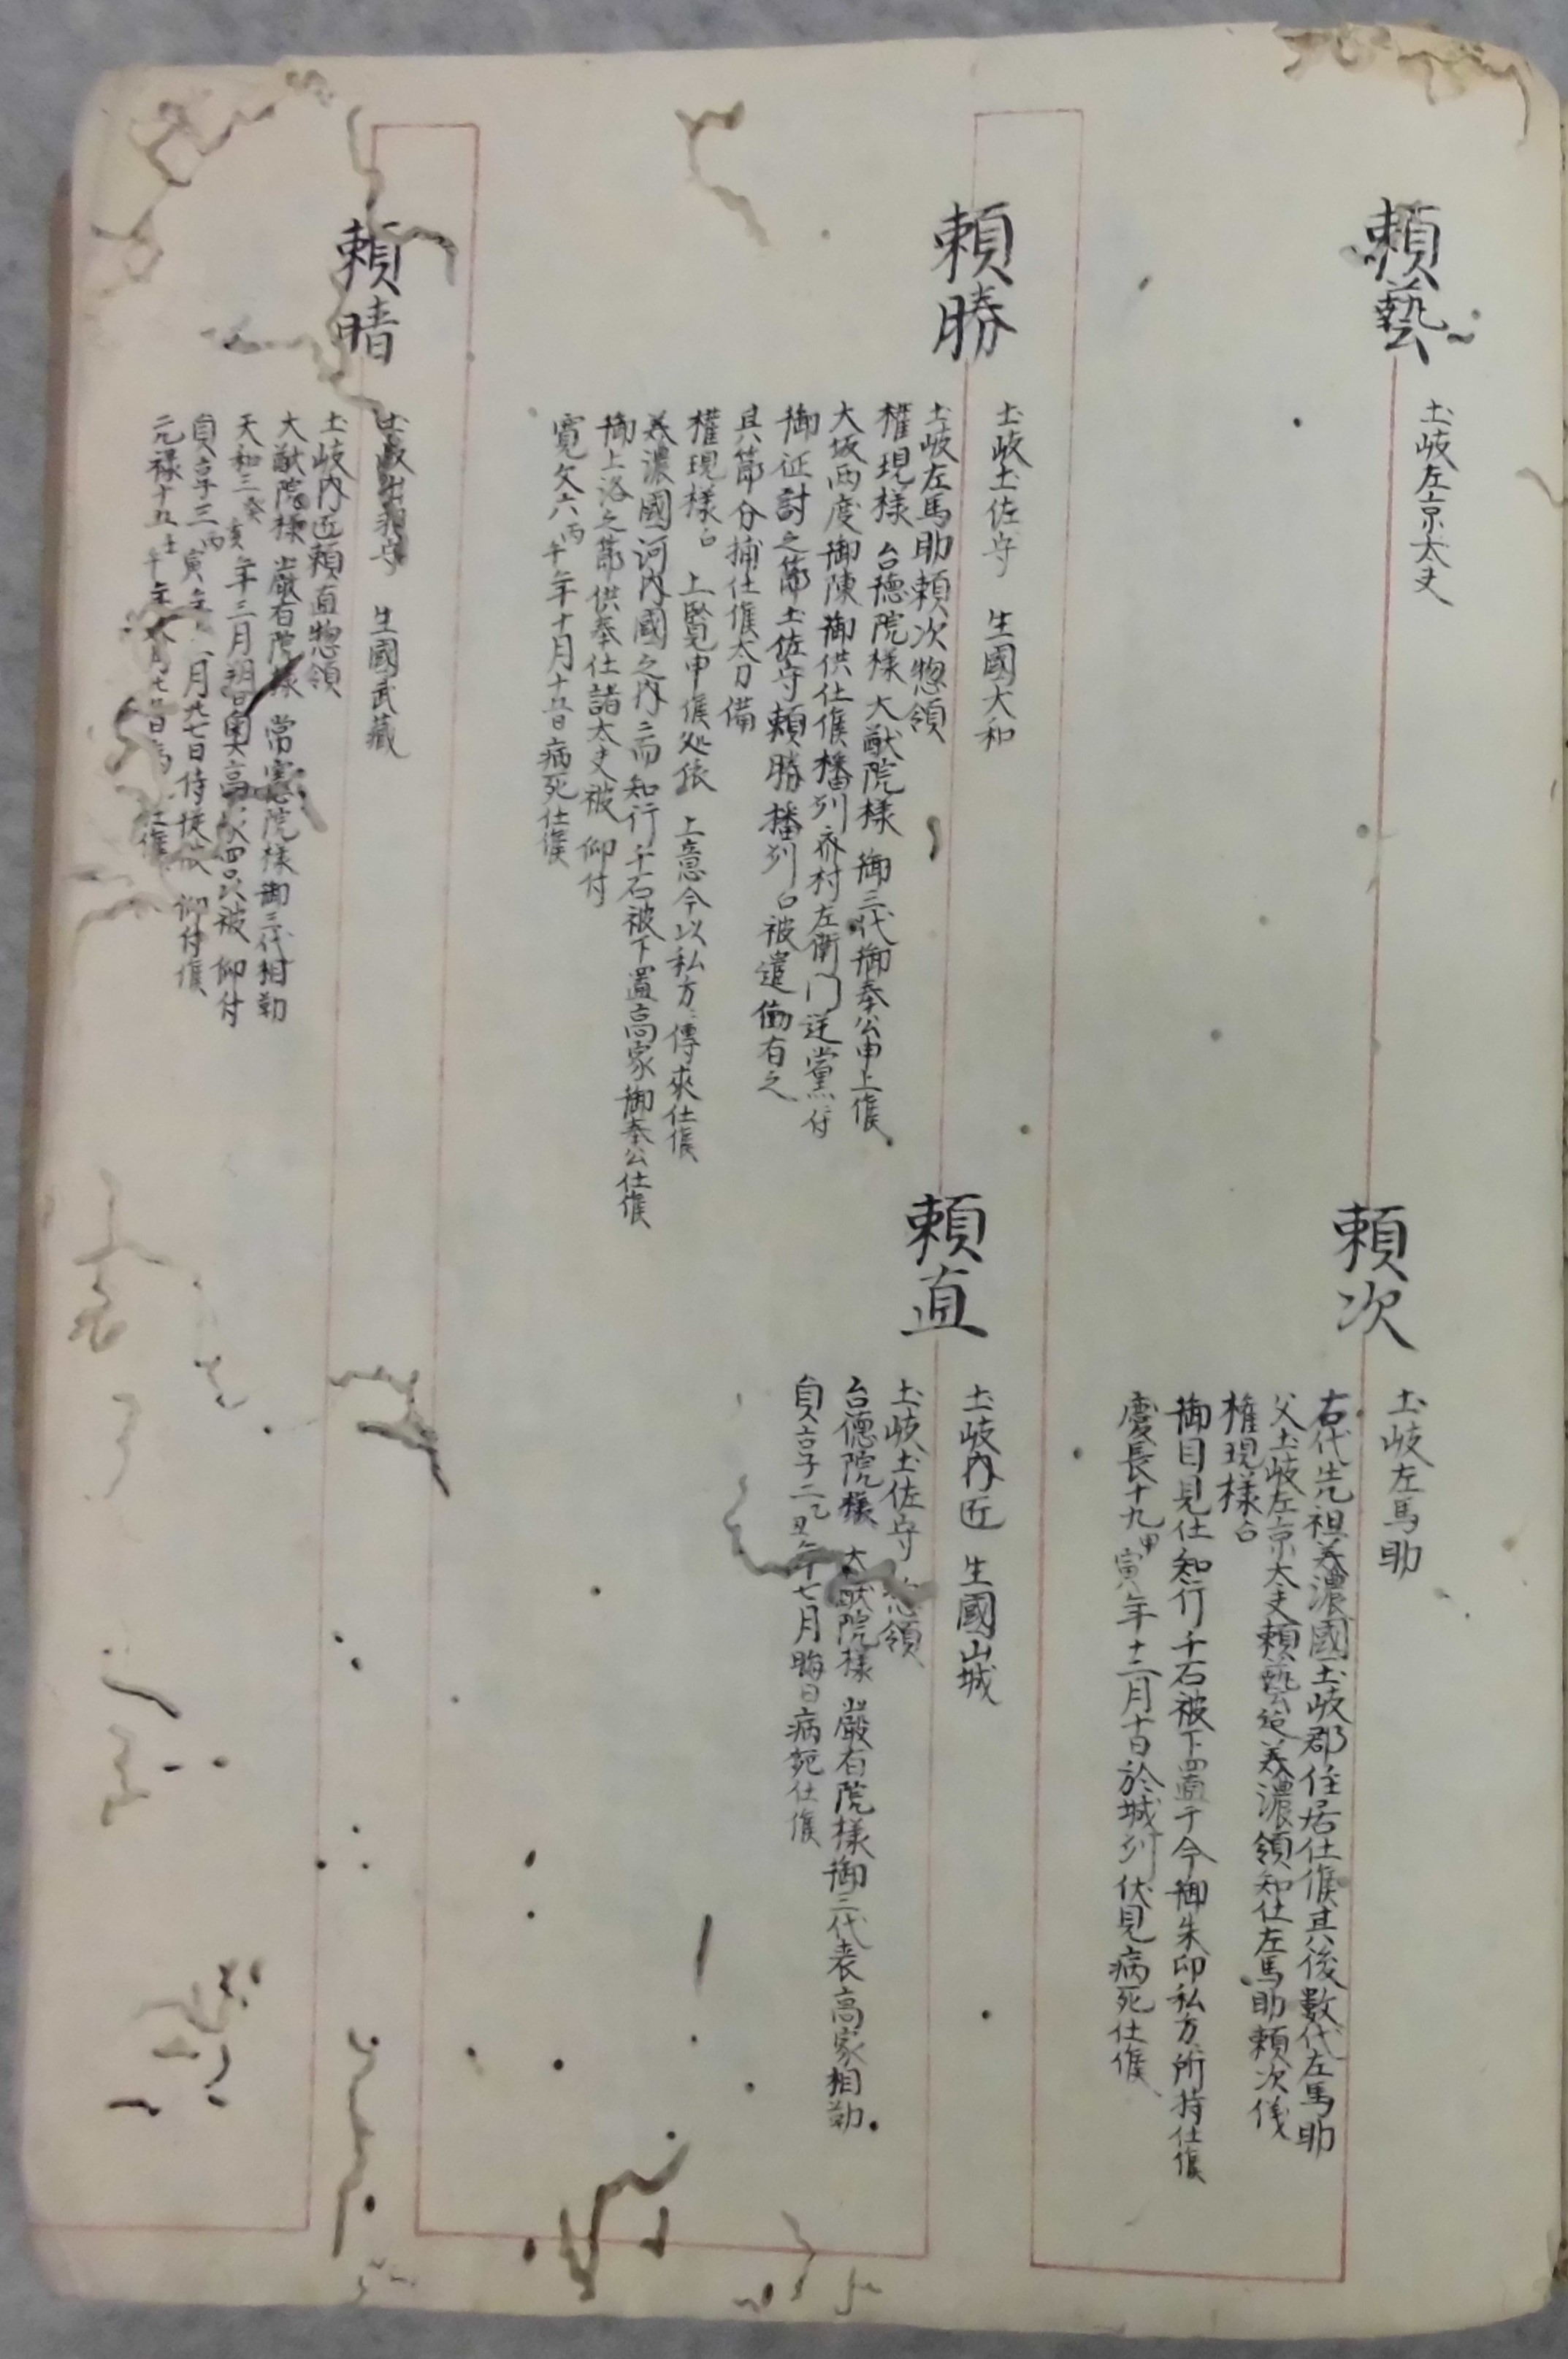 頼藝
土岐左京太夫
頼次
土岐左馬助
右代先祖美濃國土岐郡住居仕候其後數代左馬助
父土岐左京太夫頼藝迠美濃領知仕左馬助頼次儀
権現様江
御目見仕知行千石被下置于今御朱印私方所持仕候
慶長十九甲寅年十二月十日於城州伏見病死仕候
頼勝
土岐土佐守 生國大和
土岐左馬助頼次惣領
権現様 台徳院様 大猷院様 御三代御奉公申上候
大坂両度御陳御供仕候播州赤村左衛門逆黨付
御征討之節土佐守頼勝播州江被遣働有之
其節分捕仕候太刀備
権現様江 上覧申候処依 上意今以私方傳來仕候
美濃國河内國之内ニ而知行千石被下置高家御奉公仕候
御上洛之節供奉仕諸太夫被 仰付
寛文六丙午年十月十五日病死仕候
頼直
土岐内匠 生國山城
土岐土佐守惣領
台徳院様 大猷院様 嚴有院様御三代表高家相勤
貞享二乙丑年七月晦日病死仕候
頼晴
土岐出羽守 生國武藏
土岐内匠頼直惣領
大猷院様 嚴有院様 常憲院様御三代相勤
天和三癸亥年三月朔日奥高家 被 仰付
貞享三丙寅年 月 七日侍従被 仰付候
元禄十五壬午年 月 日病 仕候